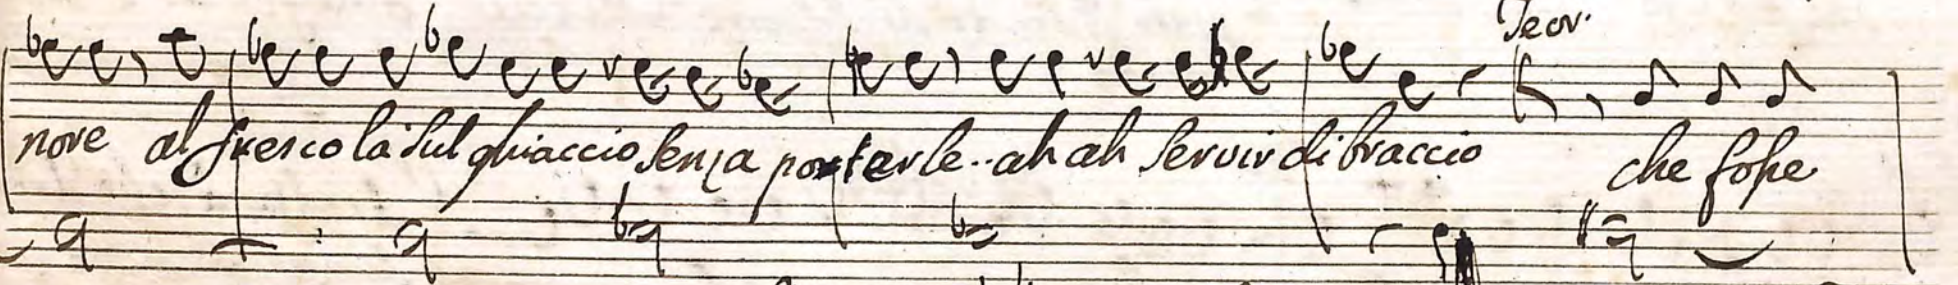 Teor.
nove al fresco là sul ghiaccio senza poterle.. ah ah servir di braccio che fosse